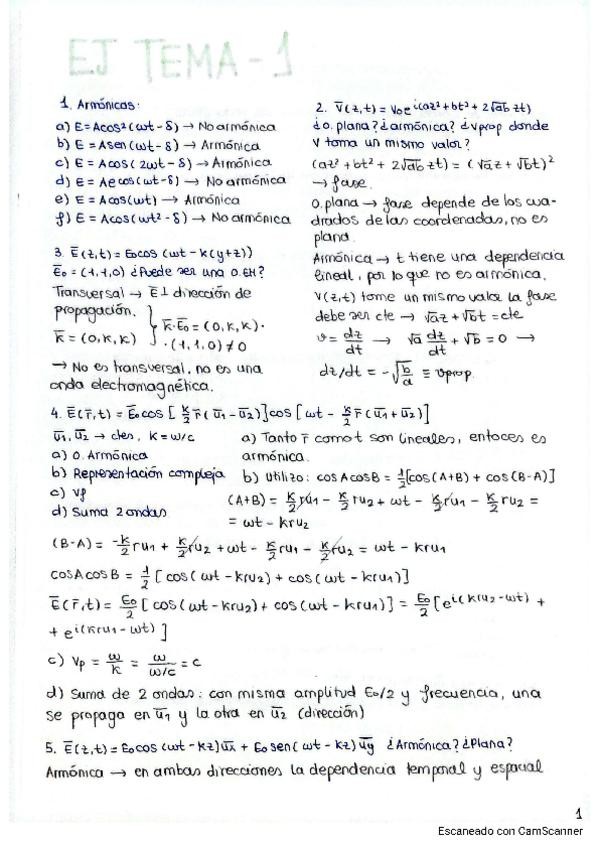 EJ TEMA-1
1. Armónicas:
a) E = Acos²(ωt - δ) → No armónica
b) E = Asen(ωt - δ) → Armónica
c) E = Acos(2ωt - δ) → Armónica
d) E = Ae cos(ωt - δ) → No armónica
e) E = Acos(ωt) → Armónica
f) E = Acos(ωt² - δ) → No armónica
2. V̄(z,t) = V₀e^i(az² + bt² + 2√ab zt)
¿O. plana? ¿armónica? ¿vprop donde
V toma un mismo valor?
(az² + bt² + 2√ab zt) = (√a z + √b t)²
→ fase.
O. plana → fase depende de los cua-
drados de las coordenadas, no es
plana.
Armónica → t tiene una dependencia
lineal, por lo que no es armónica.
V(z,t) tome un mismo valor la fase
debe ser cte → √az + √bt = cte
v = dz/dt → √a dz/dt + √b = 0 →
dz/dt = -√b/a ≡ vprop
3. Ē(z,t) = E₀cos(ωt - k(y+z))
Ē₀ = (1,1,0) ¿Puede ser una O. EM?
Transversal → Ē ⊥ dirección de
propagación.
k̄ = (0,k,k) } k̄·Ē₀ = (0,k,k)·
·(1,1,0) ≠ 0
→ No es transversal, no es una
onda electromagnética.
4. Ē(r̄,t) = Ē₀cos[k/2 r̄(ū₁ - ū₂)]cos[ωt - k/2 r̄(ū₁ + ū₂)]
ū₁, ū₂ → ctes, k = ω/c
a) O. Armónica
b) Representación compleja
c) Vf
d) Suma 2 ondas
a) Tanto r̄ como t son lineales, entoces es
armónica.
b) Utilizo: cosAcosB = 1/2[cos(A+B) + cos(B-A)]
(A+B) = k/2 ru₁ - k/2 ru₂ + ωt - k/2 ru₁ - k/2 ru₂ =
= ωt - kru₂
(B-A) = -k/2 ru₁ + k/2 ru₂ + ωt - k/2 ru₁ - k/2 ru₂ = ωt - kru₁
cosAcosB = 1/2 [cos(ωt - kru₂) + cos(ωt - kru₁)]
Ē(r̄,t) = E₀/2 [cos(ωt - kru₂) + cos(ωt - kru₁)] = E₀/2 [e^i(kru₂ - ωt) +
+ e^i(kru₁ - ωt)]
c) Vp = ω/k = ω/ω/c = c
d) Suma de 2 ondas: con misma amplitud E₀/2 y frecuencia, una
se propaga en ū₁ y la otra en ū₂ (dirección)
5. Ē(z,t) = E₀cos(ωt - kz)ūx + E₀sen(ωt - kz)ūy ¿Armónica? ¿Plana?
Armónica → en ambas direcciones la dependencia temporal y espacial
1
Escaneado con CamScanner